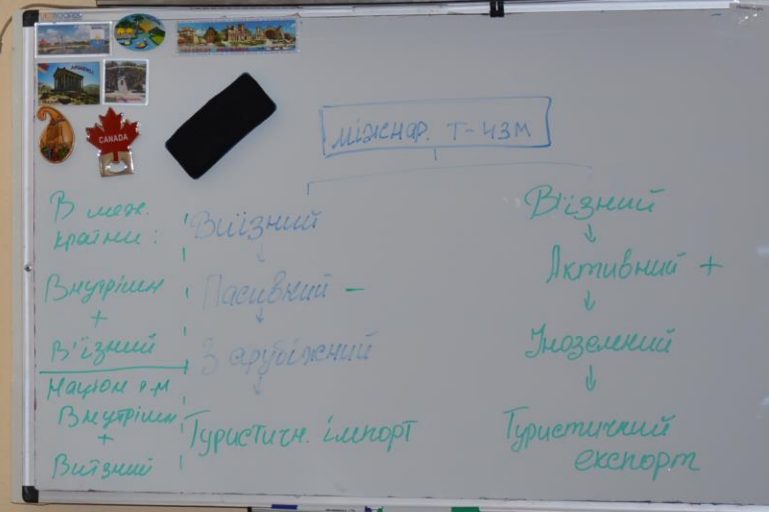 ARMENIA
CANADA
міжнар. т-чзм
В меж.
країни:
Внутрішн
+
В'їзний
Націон т-м
Внутрішн
+
Виїзний
Виїзний
↓
Пасивний -
↓
Зарубіжний
↓
Туристичн. імпорт
В'їзний
↓
Активний +
↓
Іноземний
↓
Туристичний
експорт